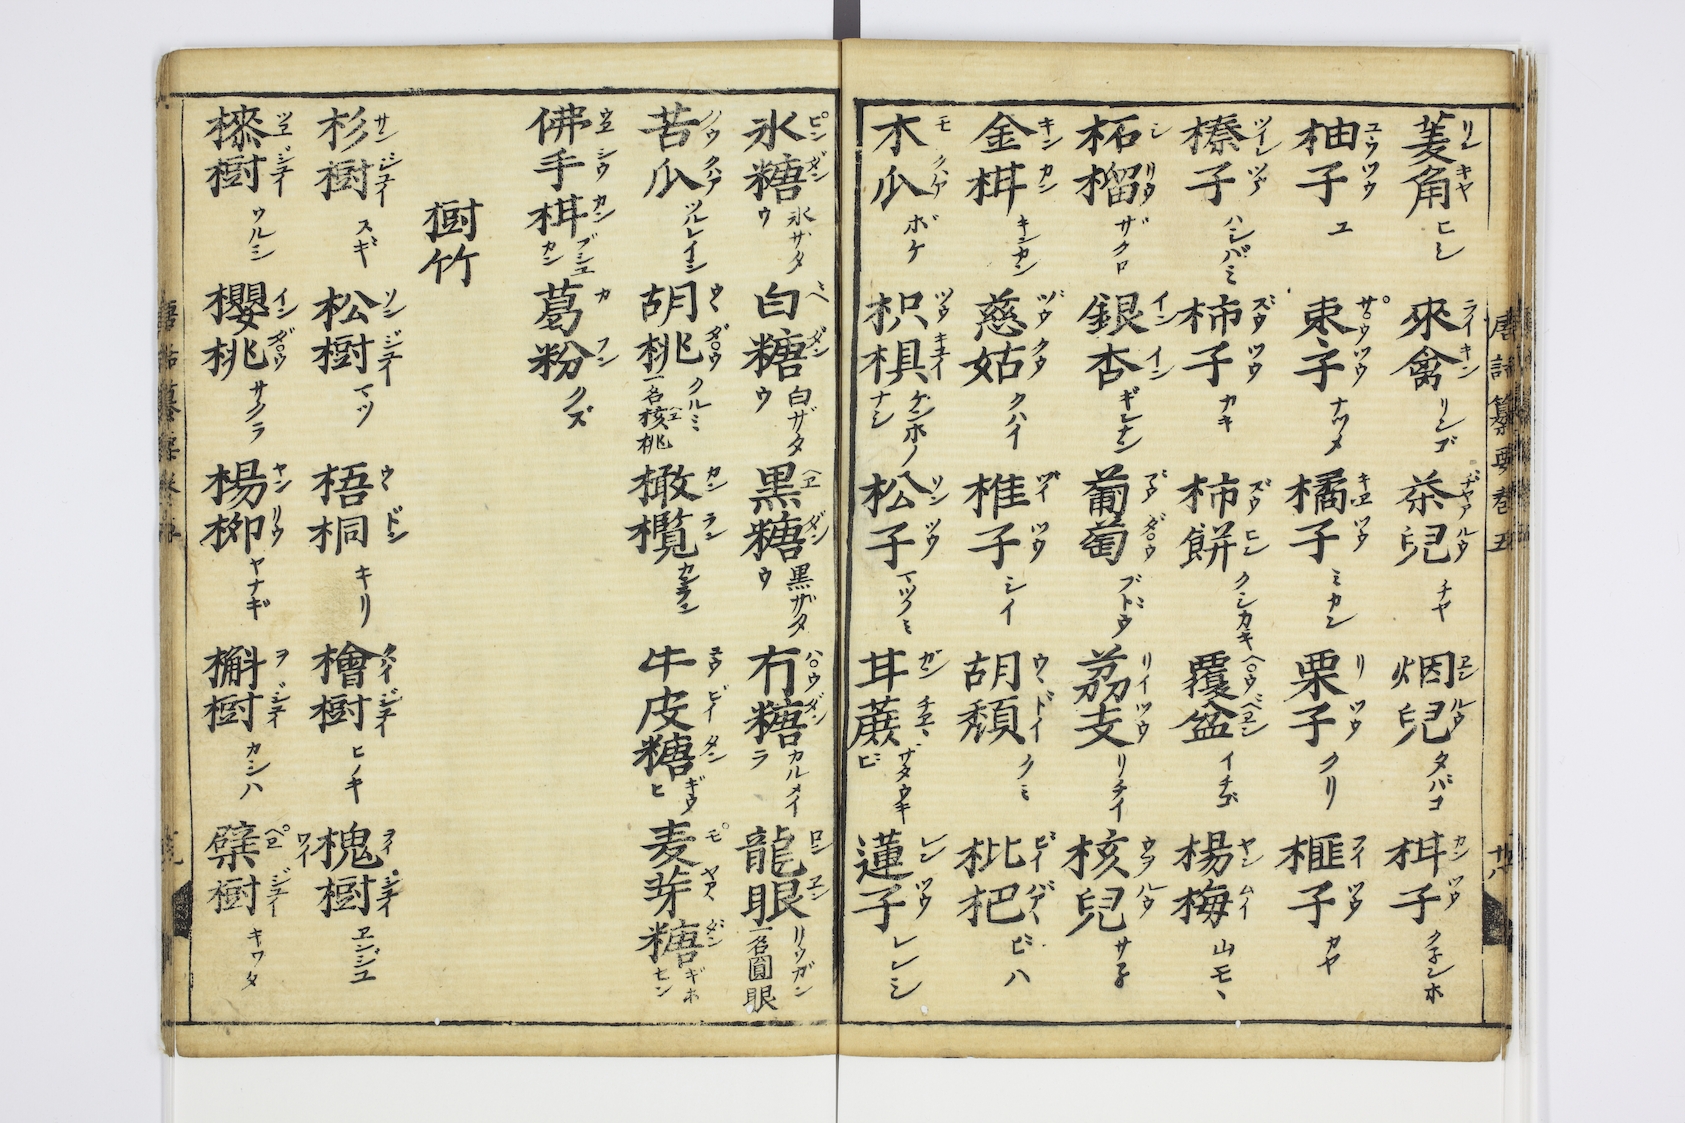 菱角 リン キヤ ヒシ 來禽 ライ キン リンゴ 茶兒 ヂヤア ルウ チヤ 烟兒 エン ルウ タバコ 柑子 カン ツウ クネンホ
柚子 ユウ ツウ ユ 棗子 サ゜ウ ツウ ナツメ 橘子 キヱ ツウ ミカン 栗子 リ ツウ クリ 榧子 フイ ツウ カヤ
榛子 ツイン ツウ ハシバミ 柿子 ズウ ツウ カキ 柿餅 ズウ ピン クシカキ 覆盆 ペヱン イチゴ 楊梅 ヤン ムイ 山モヽ
柘榴 シ リウ ザクロ 銀杏 イン イン ギンナン 葡萄 ブウ ダ゜ウ ブドウ 茘支 リイ ツウ リチイ 核兒 ウヲ ルウ サネ
金柑 キン カン キンカン 慈姑 ヅウ クウ クハイ 椎子 ヅイ ツウ シイ 胡頽 ウヽ ドイ クミ 枇杷 ビイ バアヽ ビハ
木瓜 モ クハア ボケ 枳椇 ツウ キユイ ケンホノナシ 松子 ソン ツウ マツノミ 甘蔗 ガン チヱヽ サタウキビ 蓮子 レン ツウ レンミ
唐話纂要卷五 十八
氷糖 ピン ダン 氷ザタウ 白糖 ダン 白ザタウ 黒糖 ヘヱ ダン 黒ザタウ 冇糖 ハ゜ウ ダン カルメイラ 龍眼 ロン エン リウガン 一名圓眼
苦瓜 クウ クハア ツルレイシ 胡桃 ウヽ ダ゜ウ クルミ 一名核桃 橄欖 カン ラン カンラン 牛皮糖 ニウ ビイ ダン ギウヒ 麦芽糖 モ ヤアヽ ダン ギホヒン
佛手柑 ウヱ シウ カン ブシユカン 葛粉 カ フン クズ
樹竹
杉樹 サン ジユイ スギ 松樹 ソン ジユイ マツ 梧桐 ウヽ ドン キリ 檜樹 クイ ジユイ ヒノキ 槐樹 ヲイ ジユイ ヱンジユ
樣樹 ツヱ ジユイ ウルシ 櫻桃 イン ダ゜ウ サクラ 楊柳 ヤン リウ ヤナギ 槲樹 ヲ ジユイ カシハ 檗樹 ペ゜ヱ ジユイ キワタ